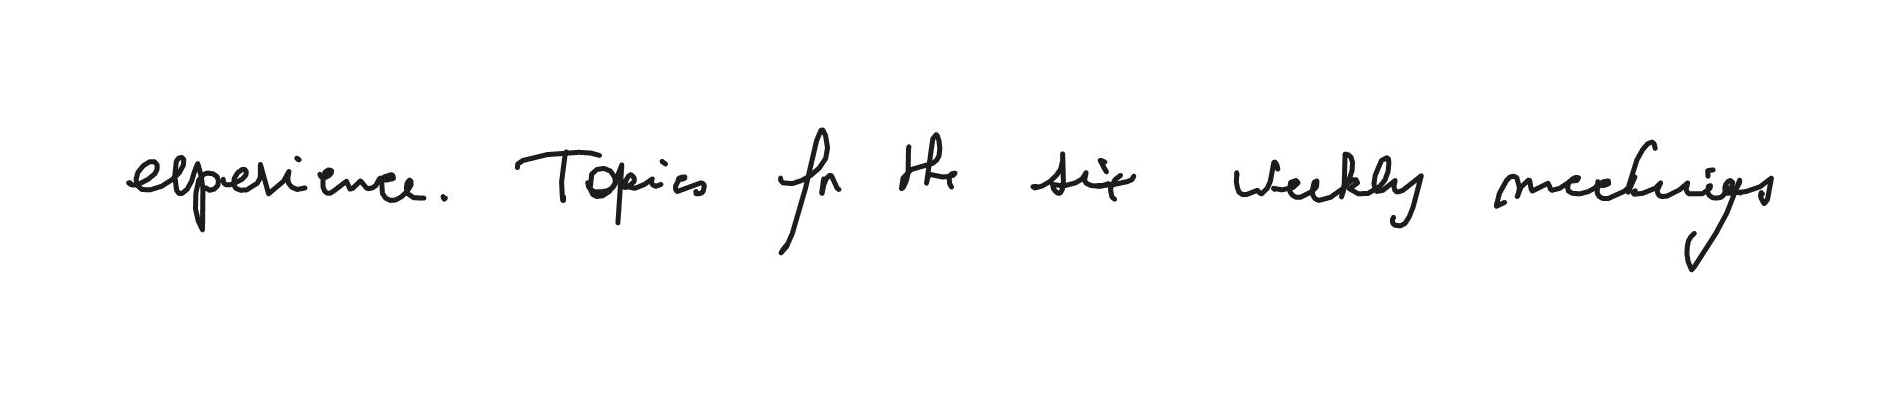 experience. Topics for the six weekly meetings